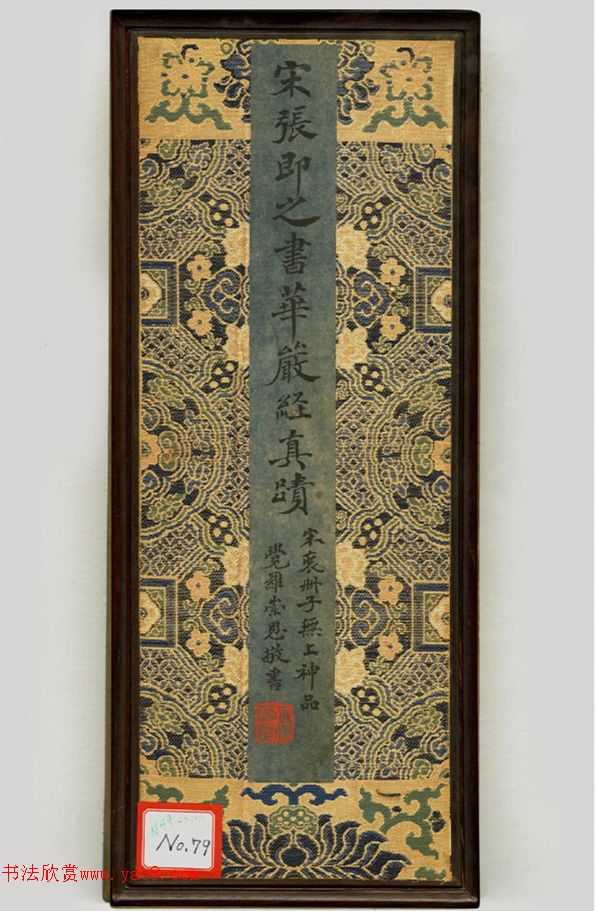 宋張即之書華嚴経真蹟
宋裱冊子無上神品
覺羅崇恩敬書
No.79
书法欣赏www.